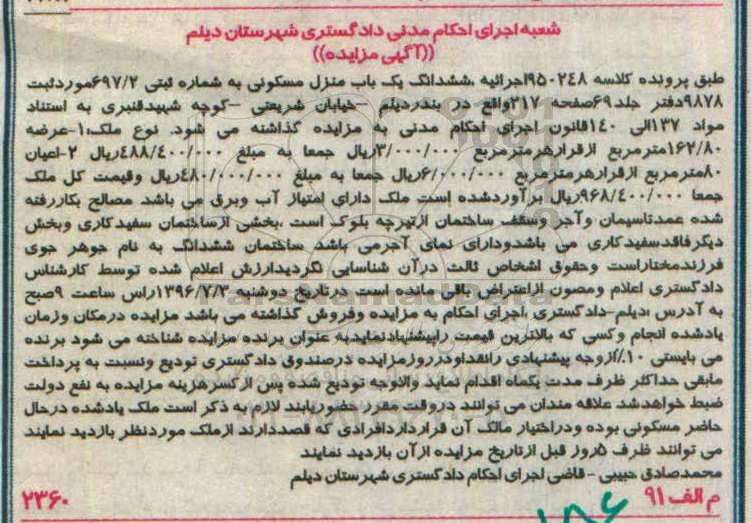 شعبه اجرای احکام مدنی دادگستری شهرستان دیلم
((آگهی مزایده))
طبق پرونده کلاسه ۹۵۰۲۴۸اجرائیه ،ششدانگ یک باب منزل مسکونی به شماره ثبتی ۶۹۷/۲موردثبت
۹۸۷۸دفتر جلد۶۹صفحه ۲۱۷واقع در بندردیلم –خیابان شریعتی –کوچه شهیدقنبری به استناد
مواد ۱۳۷الی ۱۴۰قانون اجرای احکام مدنی به مزایده گذاشته می شود. نوع ملک:۱-عرصه
۱۶۲/۸۰مترمربع ازقرارهرمترمربع ۳/۰۰۰/۰۰۰ریال جمعا به مبلغ ۴۸۸/۴۰۰/۰۰۰ریال ۲-اعیان
۸۰مترمربع ازقرارهرمترمربع ۶/۰۰۰/۰۰۰ریال جمعا به مبلغ ۴۸۰/۰۰۰/۰۰۰ریال وقیمت کل ملک
جمعا ۹۶۸/۴۰۰/۰۰۰ریال برآوردشده است ملک دارای امتیاز آب وبرق می باشد مصالح بکاررفته
شده عمدتاسیمان وآجر وسقف ساختمان ازتیرچه بلوک است .بخشی ازساختمان سفیدکاری وبخش
دیگرفاقدسفیدکاری می باشدودارای نمای آجرمی باشد ساختمان ششدانگ به نام جوهر جوی
فرزندمختاراست وحقوق اشخاص ثالث درآن شناسایی نگردیدارزش اعلام شده توسط کارشناس
دادگستری اعلام ومصون ازاعتراض باقی مانده است درتاریخ دوشنبه ۱۳۹۶/۷/۳راس ساعت ۹صبح
به آدرس :دیلم-دادگستری ،اجرای احکام به مزایده وفروش گذاشته می باشد مزایده درمکان وزمان
یادشده انجام وکسی که بالاترین قیمت راپیشنهادنمایدبه عنوان برنده مزایده شناخته می شود برنده
می بایستی ۱۰٪ازوجه پیشنهادی رانقداودرروزمزایده درصندوق دادگستری تودیع ونسبت به پرداخت
مابقی حداکثر ظرف مدت یکماه اقدام نماید والاوجه تودیع شده پس ازکسرهزینه مزایده به نفع دولت
ضبط خواهدشد علاقه مندان می توانند دروقت مقرر حضوریابند لازم به ذکر است ملک یادشده درحال
حاضر مسکونی بوده ودراختیار مالک آن قرارداردافرادی که قصددارند ازملک موردنظر بازدید نمایند
می توانند ظرف ۵روز قبل ازتاریخ مزایده ازآن بازدید نمایند
محمدصادق حبیبی – قاضی اجرای احکام دادگستری شهرستان دیلم
م الف ۹۱
۲۳۶۰
ParsNamadData